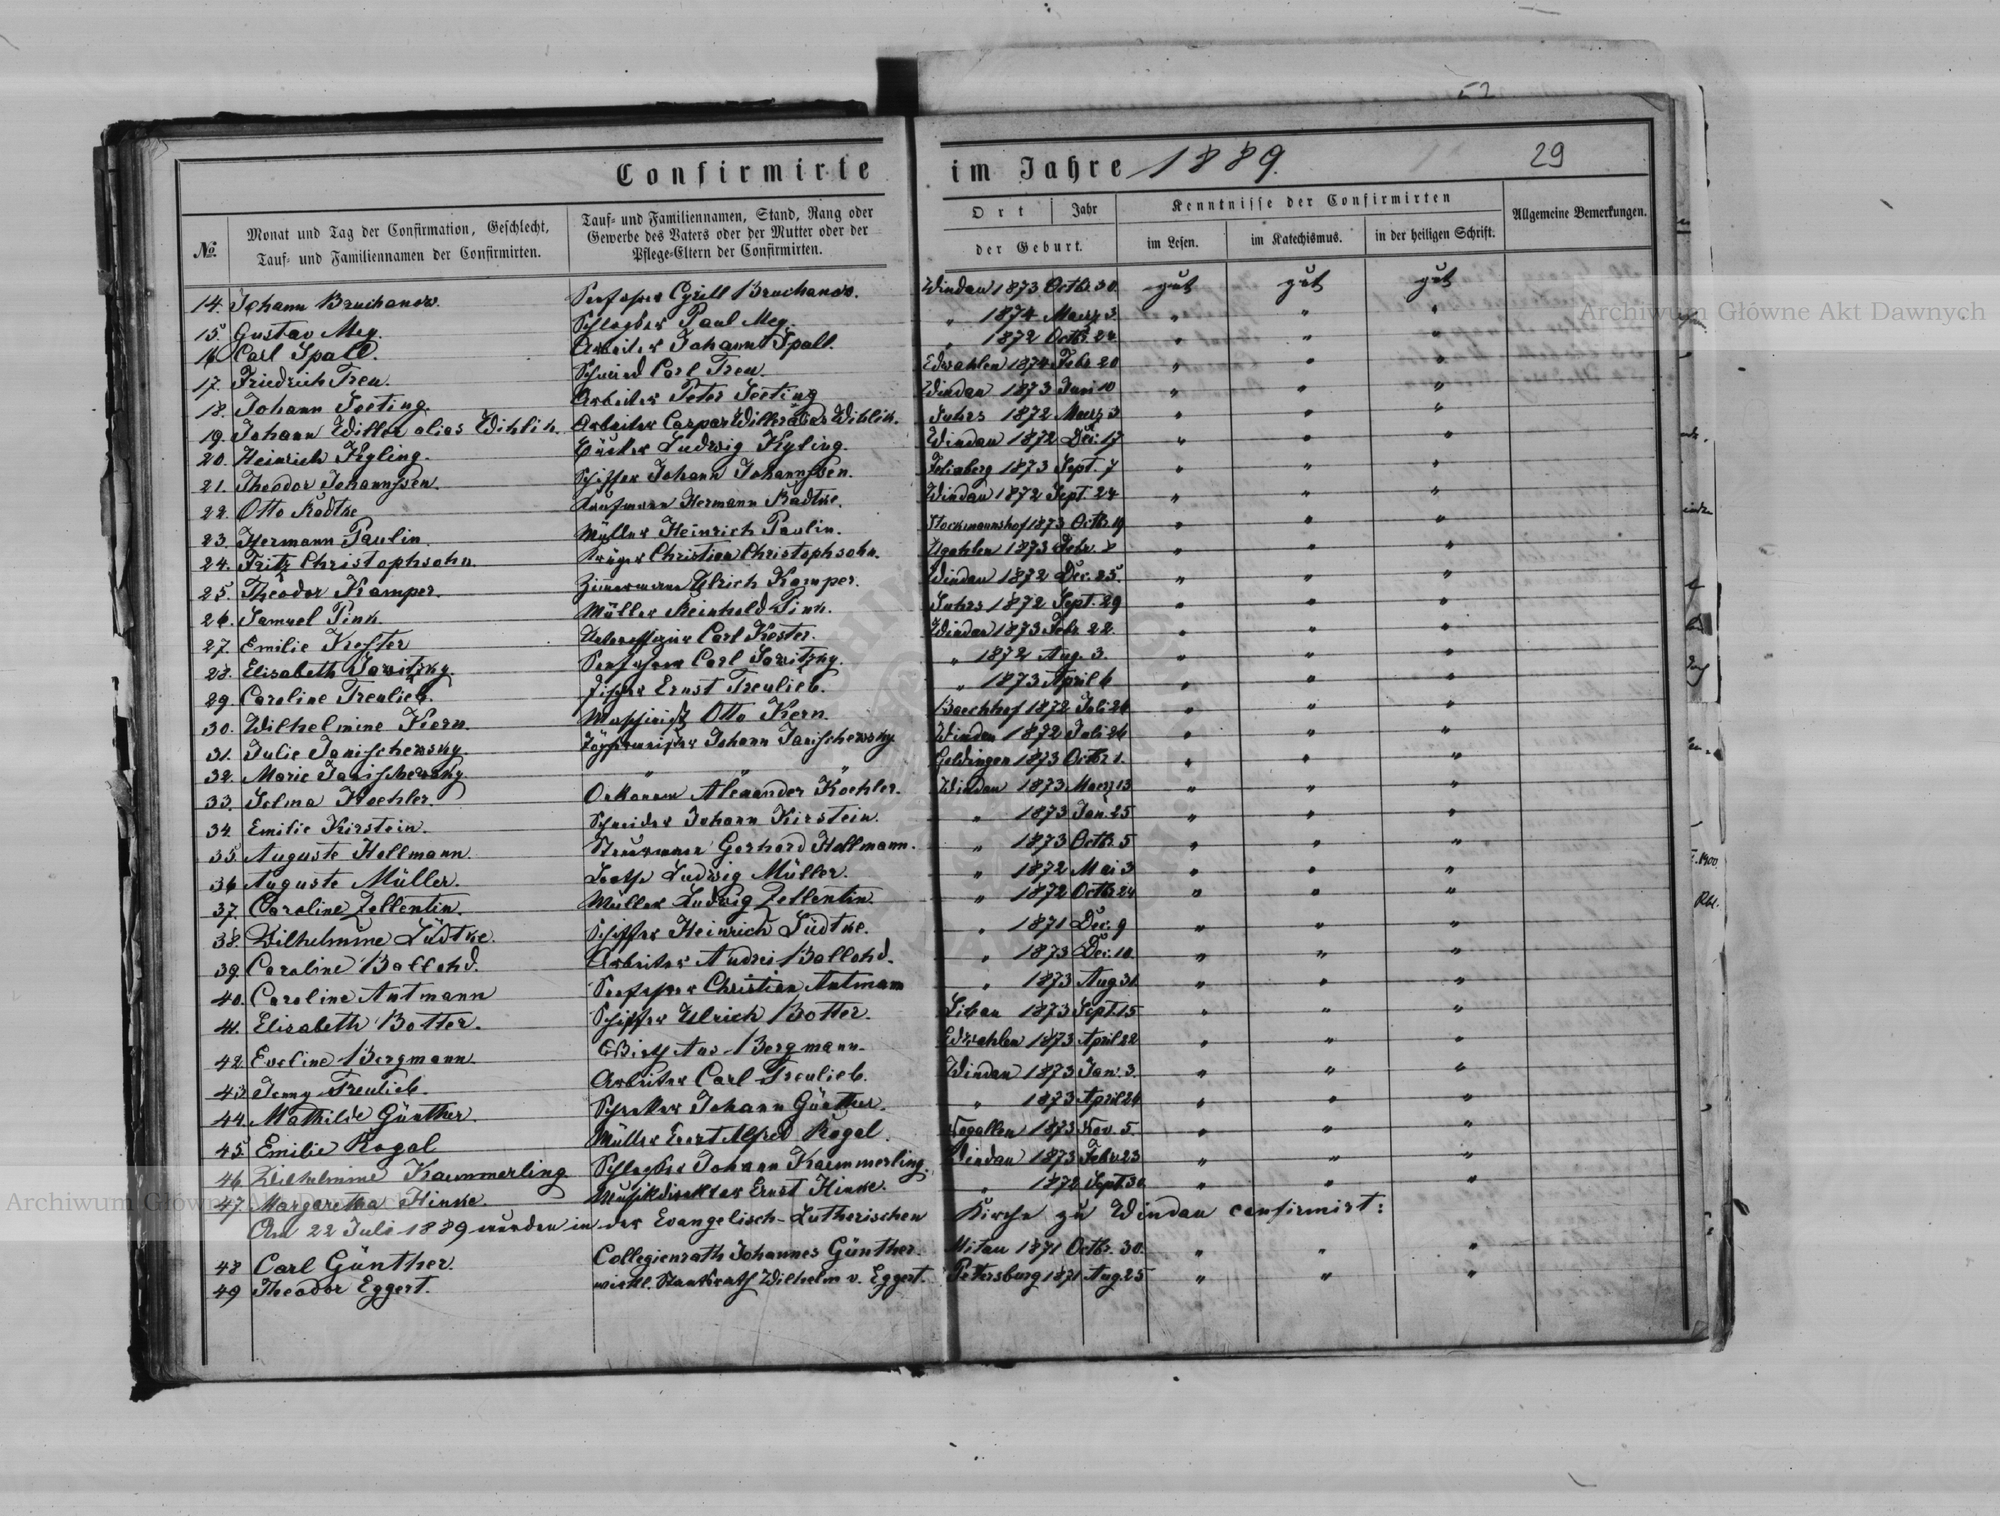 52
Confirmirte im Jahre 1889. 29
№ Monat und Tag der Confirmation, Geschlecht, Tauf- und Familiennamen der Confirmirten. Tauf- und Familiennamen, Stand, Rang oder Gewerbe des Vaters oder der Mutter oder der Pflege-Eltern der Confirmirten. Ort Jahr der Geburt. Kenntnisse der Confirmirten im Lesen. im Katechismus. in der heiligen Schrift. Allgemeine Bemerkungen.
14. Johann Bruchanow. Cyrill Bruchanow. Windau 1873 Octbr. 30 gut gut gut
15. Gustav Mey. Paul Mey. " 1874 Maerz 3 " " "
16. Carl Spall. Arbeiter Johann Spall. " 1872 Octbr. 24 " " "
17. Friedrich Treu. Schmied Carl Treu. Edwahlen 1874 Febr. 20 " " "
18. Johann Seeting. Arbeiter Peter Seeting Windau 1873 Juni 10 " " "
19. Johann Willer alias Wihlih. Arbeiter Caspar Willer alias Wihlih. Suhrs 1872 Maerz 3 " " "
20. Heinrich Kyling. Küster Ludwig Kyling. Windau 1872 Dec. 17 " " "
21. Theodor Johannssen. Schiffer Johann Johannssen. Felixberg 1873 Sept. 7 " " "
22. Otto Radtke Kaufmann Hermann Radtke. Windau 1872 Sept. 24 " " "
23. Hermann Paulin. Müller Heinrich Paulin. Stockmannshof 1873 Octbr. 19 " " "
24. Fritz Christophsohn. Krüger Christian Christophsohn. Ugahlen 1873 Febr. 8 " " "
25. Theodor Kamper. Zimmermann Ulrich Kamper. Windau 1872 Dec. 25. " " "
26. Samuel Pink. Müller Reinhold Pink. Suhrs 1872 Sept. 29 " " "
27. Emilie Kester Unteroffizier Carl Kester. Windau 1873 Febr. 22. " " "
28. Elisabeth Sawitzky. Carl Sawitzky. " 1872 Aug. 3. " " "
29. Caroline Treulieb. Fischer Ernst Treulieb. " 1873 April 6 " " "
30. Wilhelmine Kern. Maschinist Otto Kern. Baechhof 1872 Juli 24 " " "
31. Julie Janischewsky. Töpfermeister Johann Janischewsky Windau 1872 Juli 26 " " "
32. Marie Janischewsky. " " " Goldingen 1873 Octbr. 1. " " "
33. Selma Koehler. Oekonom Alexander Koehler. Windau 1873 Maerz 13 " " "
34. Emilie Kirstein. Schneider Johann Kirstein. " 1873 Jan. 25 " " "
35. Auguste Hellmann. Steuermann Gerhard Hellmann. " 1873 Octbr. 5 " " "
36. Auguste Müller. Lootse Ludwig Müller. " 1872 Mai 3 " " "
37. Caroline Zellentin. Müller Ludwig Zellentin " 1872 Octbr. 24 " " "
38. Wilhelmine Lüdtke. Schiffer Heinrich Lüdtke. " 1871 Dec. 9 " " "
39. Caroline Ballohd. Arbeiter Andrei Ballohd. " 1873 Dec. 10. " " "
40. Caroline Antmann Christian Antmann " 1873 Aug. 31. " " "
41. Elisabeth Botter. Schiffer Ulrich Botter. Libau 1873 Sept. 15 " " "
42. Eveline Bergmann. Wirth Ans Bergmann. Edwahlen 1873 April 22 " " "
43. Jenny Treulieb. Arbeiter Carl Treulieb. Windau 1873 Jan. 3. " " "
44. Mathilde Günther. Johann Günther. " 1873 April 24 " " "
45. Emilie Rogal Müller Ewert Alfred Rogal. 1873 Nov. 5. " " "
46. Wilhelmine Kaemmerling Johann Kaemmerling. Windau 1873 Febr. 23 " " "
47. Margaretha Hinke. Musikdirektor Ernst Hinke. " 1872 Sept. 30 " " "
Am 22 Juli 1889 wurden in der Evangelisch-Lutherischen Kirche zu Windau confirmirt:
48 Carl Günther. Collegienrath Johannes Günther. Mitau 1871 Octbr. 30. " " "
49 Theodor Eggert. wirkl. Staatsrath Wilhelm v. Eggert. Petersburg 1871 Aug. 25 " " "
Archiwum Główne Akt Dawnych
Archiwum Główne Akt Dawnych